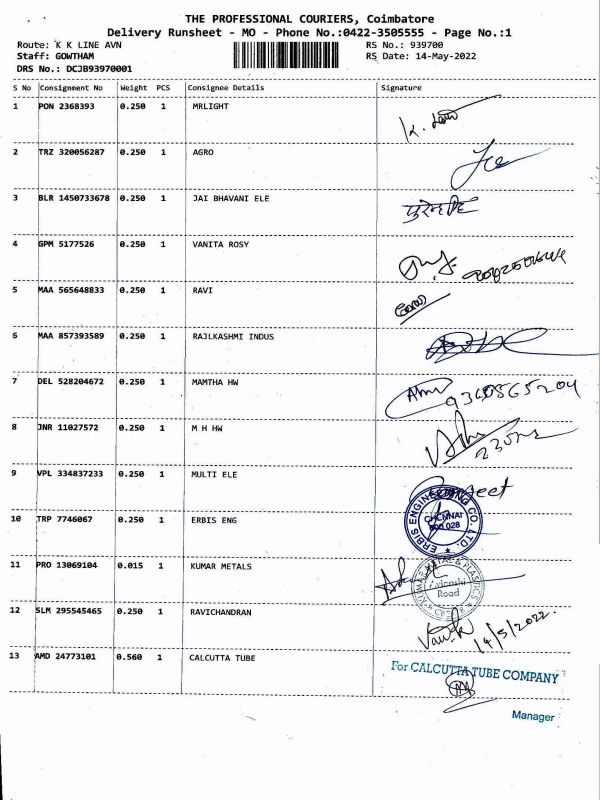 THE PROFESSIONAL COURIERS, Coimbatore
Delivery Runsheet - MO - Phone No.:0422-3505555 - Page No.:1
Route: K K LINE AVN RS No.: 939700
Staff: GOWTHAM RS Date: 14-May-2022
DRS No.: DCJB93970001
S No Consignment No Weight PCS Consignee Details Signature
1 PON 2368393 0.250 1 MRLIGHT
2 TRZ 320056287 0.250 1 AGRO
3 BLR 1450733678 0.250 1 JAI BHAVANI ELE
4 GPM 5177526 0.250 1 VANITA ROSY
5 MAA 565648833 0.250 1 RAVI
6 MAA 857393589 0.250 1 RAJLKASHMI INDUS
7 DEL 528204672 0.250 1 MAMTHA HW
8 JNR 11027572 0.250 1 M H HW
9 VPL 334837233 0.250 1 MULTI ELE
10 TRP 7746067 0.250 1 ERBIS ENG
ERBIS ENGINEERING CO. LTD.
CHENNAI
600 028
11 PRO 13069104 0.015 1 KUMAR METALS
KUMAR METAL & PLASTICS
Avinashi
Road
12 SLM 295545465 0.250 1 RAVICHANDRAN
14/5/2022
13 AMD 24773101 0.560 1 CALCUTTA TUBE
For CALCUTTA TUBE COMPANY
Manager